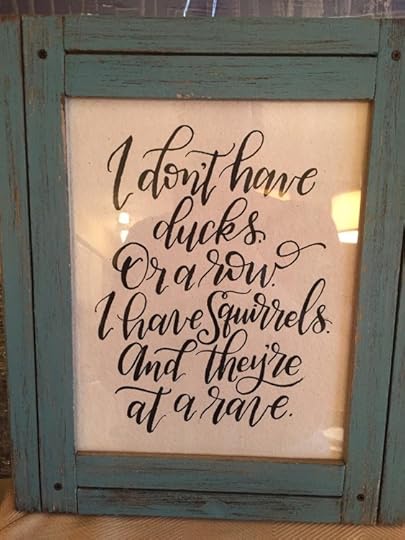 I don't have
ducks.
Or a row.
I have Squirrels.
And they're
at a rave.